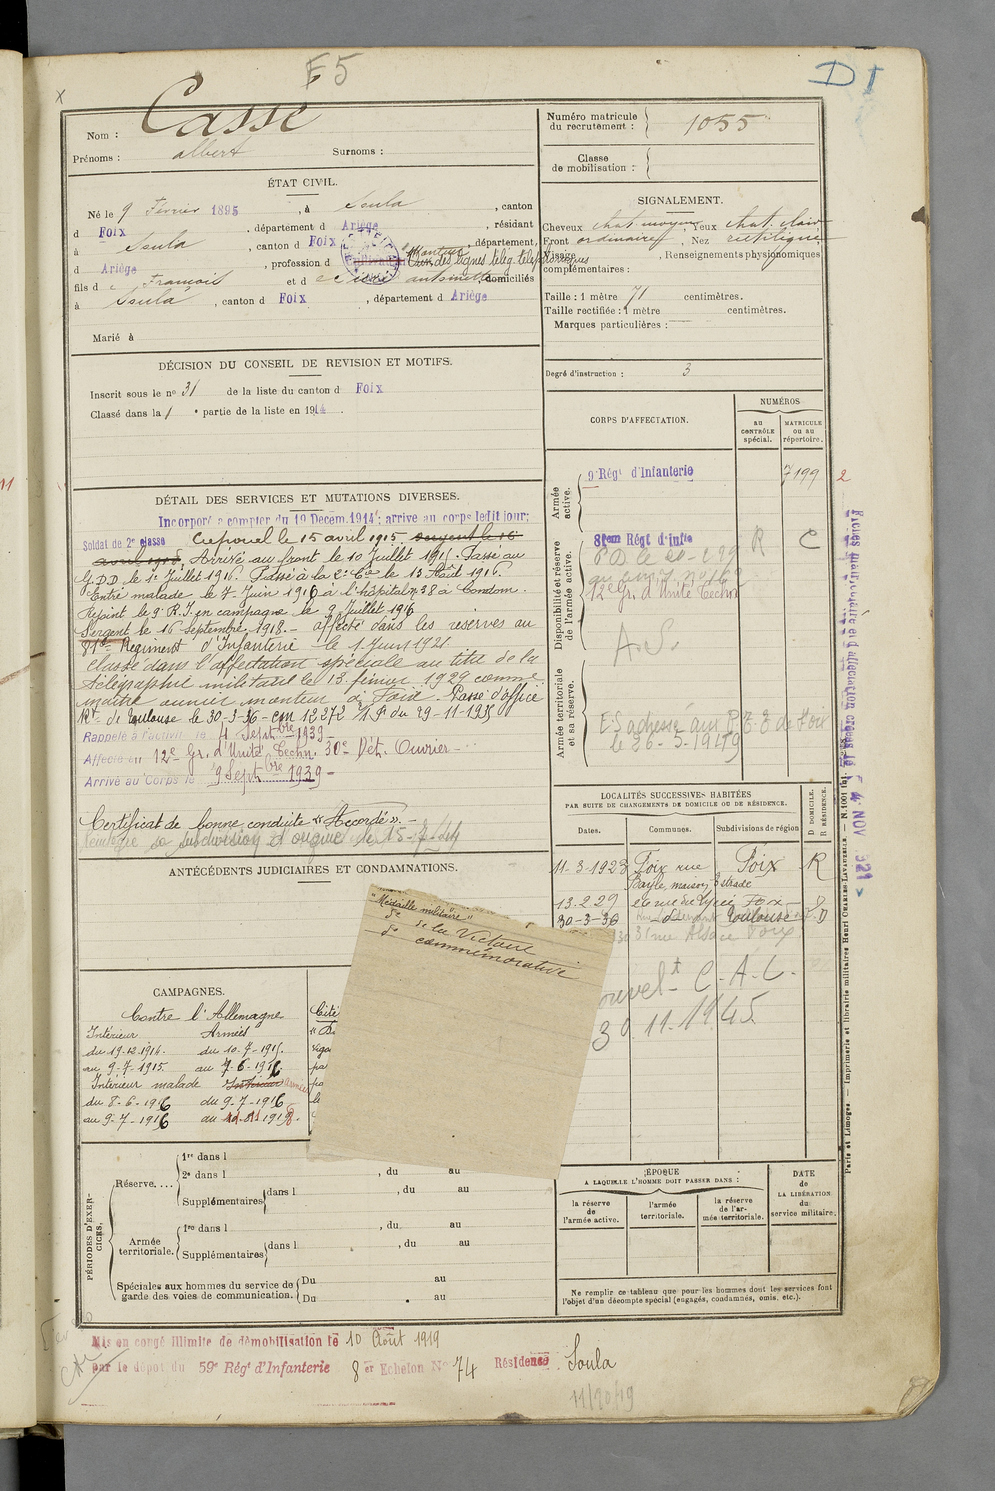 F5
D I
x
Nom : Casse
Prénoms : albert Surnoms :
Numéro matricule du recrutement : 1055
Classe de mobilisation :
ÉTAT CIVIL.
Né le 9 Février 1895, à Soula, canton
d Foix, département d Ariège, résidant
à Soula, canton d Foix, département
d Ariège, profession d Monteur
aux des lignes télég. téléphoniques
fils d e François et d e antoinette domiciliés
à Soula, canton d Foix, département d Ariège
Marié à
SIGNALEMENT.
Cheveux chat. moyen, Yeux chat. clair
Front ordinaire, Nez rectiligne
Visage, Renseignements physionomiques
complémentaires :
Taille : 1 mètre 71 centimètres.
Taille rectifiée : 1 mètre centimètres.
Marques particulières :
Degré d'instruction : 3
DÉCISION DU CONSEIL DE REVISION ET MOTIFS.
Inscrit sous le no 31 de la liste du canton d Foix
Classé dans la 1 e partie de la liste en 1914.
DÉTAIL DES SERVICES ET MUTATIONS DIVERSES.
Incorporé a compter du 19 Decem.1914; arrive au corps ledit jour;
Soldat de 2e classe Caporal le 15 avril 1915. sergent le 16
avril 1918. Arrivé au front le 10 Juillet 1915. Passé au
G.D.D. le 1er Juillet 1916. Passé à la Ce Cie le 13 Août 1916.
Entré malade le 7 Juin 1916 à l'hôpital n° 38 à Condom.
Rejoint le 9e R.I. en campagne le 9 Juillet 1916
Sergent le 16 Septembre 1918. - affecté dans les réserves au
81me Régiment d'Infanterie le 1 Juin 1921.
Classé dans l'affectation spéciale au titre de la
télégraphie militaire le 13 février 1929 comme
maître ouvrier monteur à Foix. Passé d'office
Rt de Toulouse le 30-3-36 - cm 12372 1.P du 29-11-1935
Rappelé à l'activité le 4 Septbre 1939 -
Affecté au 12e Gr. d'Unité Techn. 30e Dét. Ouvrier -
Arrivé au Corps le 9 Septbre 1939 -
Certificat de bonne conduite "Accordé". -
Réintègre sa subdivision d'origine le 15-7-44
CORPS D'AFFECTATION.
NUMÉROS
au contrôle spécial.
MATRICULE ou au répertoire.
Armée active.
9e Régt d'Infanterie 7199
2
Disponibilité et réserve de l'armée active.
81em Régt d'infie R C
12e Gr. d'Unité Techn
A.S.
Armée territoriale et sa réserve.
E S adressé aux P.T.T de Foix
le 26-5-1929
Fiches matriculaire et d'affectation créées le 4 NOV 1921
LOCALITÉS SUCCESSIVES HABITÉES
PAR SUITE DE CHANGEMENTS DE DOMICILE OU DE RÉSIDENCE.
Dates. Communes. Subdivisions de région D DOMICILE. R RÉSIDENCE.
11-3-1923 Foix rue Foix R
Bayle, maison Estrade
13.2.29 rue du lycée Foix
30-3-36 Toulouse D
31 rue Alsace Foix
C.A.L.
30.11.1945
ANTÉCÉDENTS JUDICIAIRES ET CONDAMNATIONS.
"Médaille militaire"
do de la Victoire
do commémorative
CAMPAGNES.
Contre l'Allemagne
Intérieur Armées
du 19-12-1914. du 10-7-1915.
au 9-7-1915. au 7-6-1916.
Intérieur malade Intérieur armées
du 8-6-1916 du 9-7-1916
au 9-7-1916 au 1918.
Cité
PÉRIODES D'EXERCICES.
Réserve....
1re dans l
2e dans l , du au
Supplémentaires dans l , du au
Armée territoriale.
1re dans l , du au
Supplémentaires dans l , du au
Spéciales aux hommes du service de garde des voies de communication.
Du au
Du au
ÉPOQUE
A LAQUELLE L'HOMME DOIT PASSER DANS :
la réserve de l'armée active.
l'armée territoriale.
la réserve de l'armée territoriale.
DATE de LA LIBÉRATION du service militaire.
Ne remplir ce tableau que pour les hommes dont les services font
l'objet d'un décompte spécial (engagés, condamnés, omis, etc.).
Paris et Limoges. — Imprimerie et librairie militaires Henri CHARLES-LAVAUZELLE. — N. 1001
Mis en congé illimité de démobilisation le 10 Août 1919
par le dépôt du 59e Régt d'Infanterie 8 er Echelon No 74 Résidence Soula
11/20/19